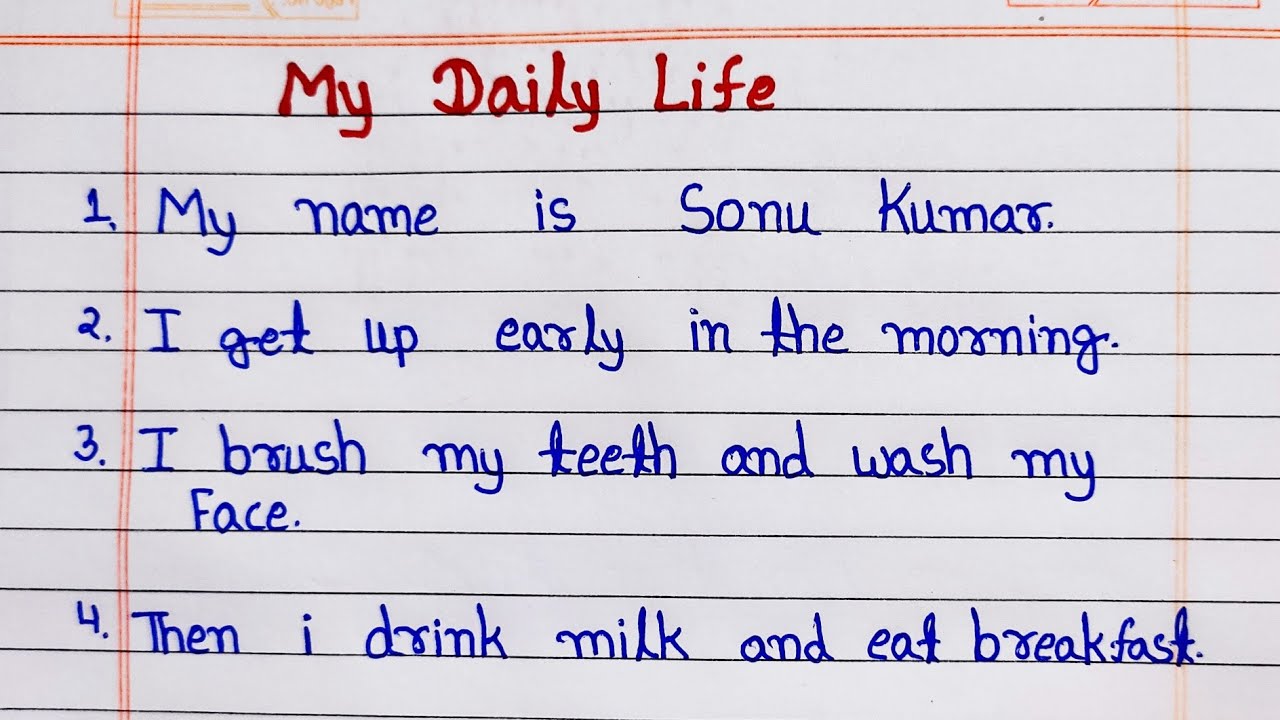 My Daily Life
1. My name is Sonu Kumar.
2. I get up early in the morning.
3. I brush my teeth and wash my
Face.
4. Then i drink milk and eat breakfast.